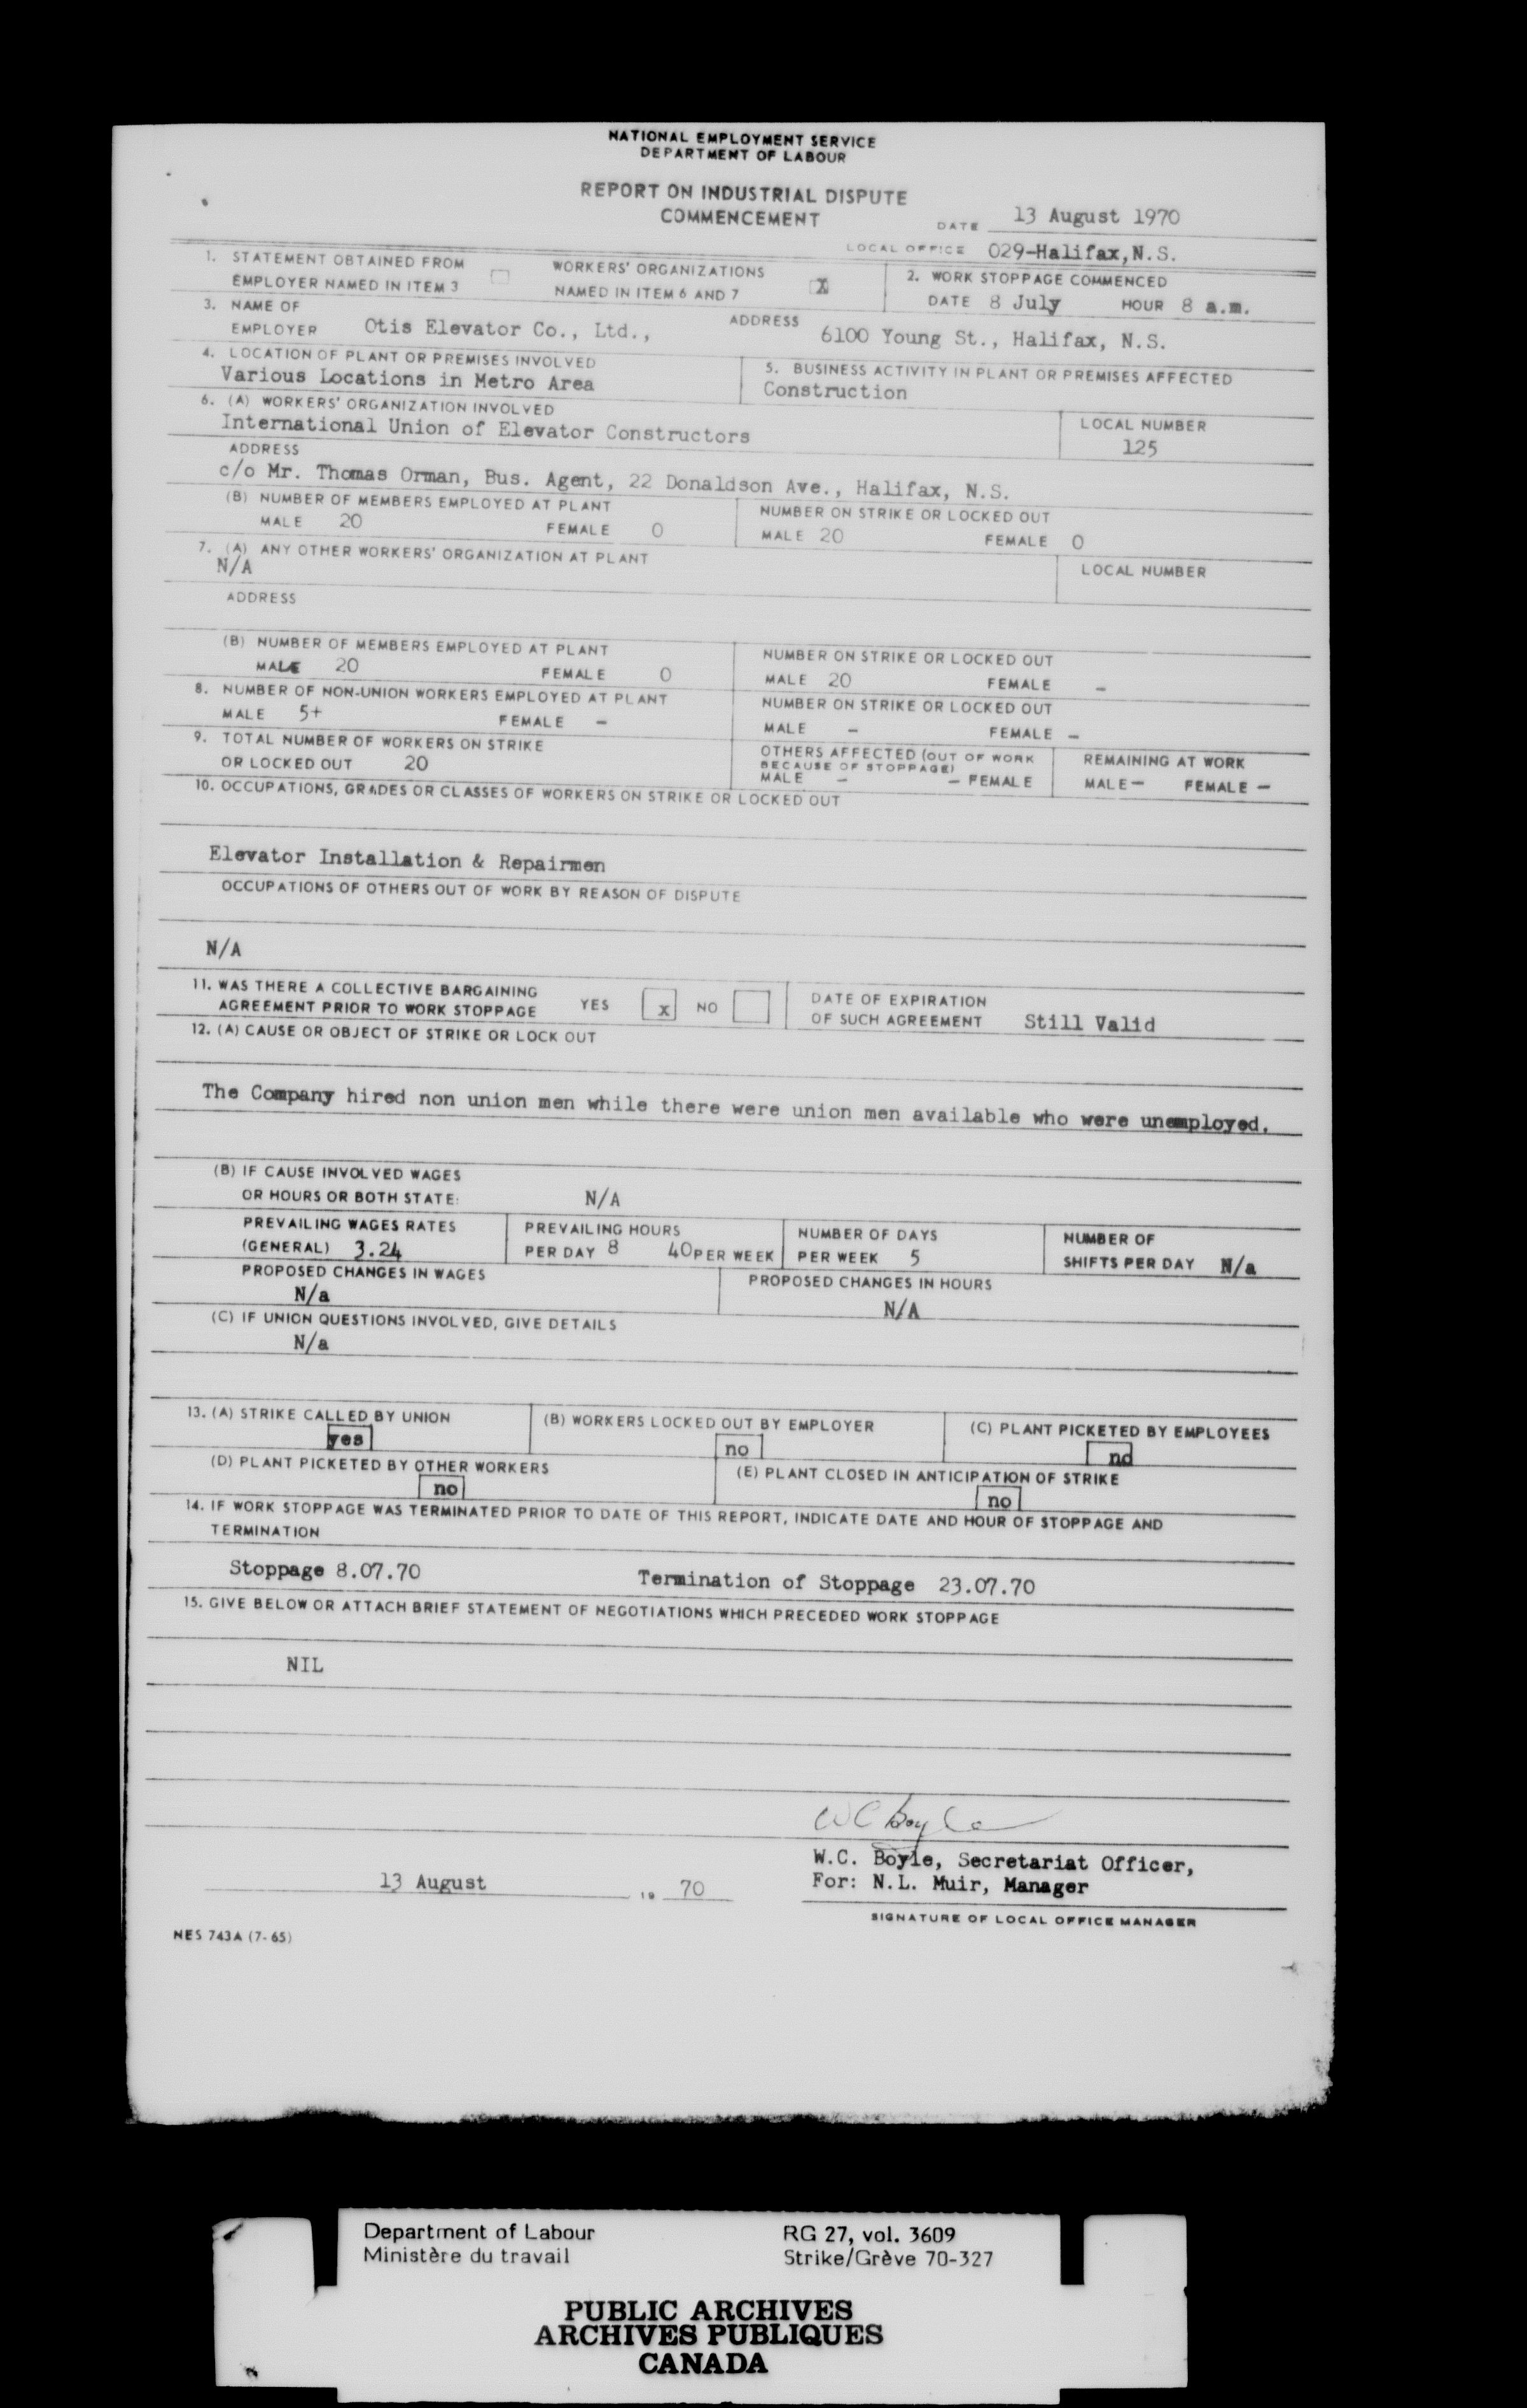 NATIONAL EMPLOYMENT SERVICE
DEPARTMENT OF LABOUR
REPORT ON INDUSTRIAL DISPUTE
COMMENCEMENT
DATE 13 August 1970
LOCAL OFFICE 029-Halifax,N.S.
1. STATEMENT OBTAINED FROM
EMPLOYER NAMED IN ITEM 3
WORKERS' ORGANIZATIONS
NAMED IN ITEM 6 AND 7 X
2. WORK STOPPAGE COMMENCED
DATE 8 July HOUR 8 a.m.
3. NAME OF
EMPLOYER Otis Elevator Co., Ltd.,
ADDRESS
6100 Young St., Halifax, N.S.
4. LOCATION OF PLANT OR PREMISES INVOLVED
Various Locations in Metro Area
5. BUSINESS ACTIVITY IN PLANT OR PREMISES AFFECTED
Construction
6. (A) WORKERS' ORGANIZATION INVOLVED
International Union of Elevator Constructors
LOCAL NUMBER
125
ADDRESS
c/o Mr. Thomas Orman, Bus. Agent, 22 Donaldson Ave., Halifax, N.S.
(B) NUMBER OF MEMBERS EMPLOYED AT PLANT
MALE 20 FEMALE 0
NUMBER ON STRIKE OR LOCKED OUT
MALE 20 FEMALE 0
7. (A) ANY OTHER WORKERS' ORGANIZATION AT PLANT
N/A
LOCAL NUMBER
ADDRESS
(B) NUMBER OF MEMBERS EMPLOYED AT PLANT
MALE 20 FEMALE 0
NUMBER ON STRIKE OR LOCKED OUT
MALE 20 FEMALE -
8. NUMBER OF NON-UNION WORKERS EMPLOYED AT PLANT
MALE 5+ FEMALE -
NUMBER ON STRIKE OR LOCKED OUT
MALE - FEMALE -
9. TOTAL NUMBER OF WORKERS ON STRIKE
OR LOCKED OUT 20
OTHERS AFFECTED (OUT OF WORK
BECAUSE OF STOPPAGE)
MALE - - FEMALE
REMAINING AT WORK
MALE - FEMALE -
10. OCCUPATIONS, GRADES OR CLASSES OF WORKERS ON STRIKE OR LOCKED OUT
Elevator Installation & Repairmen
OCCUPATIONS OF OTHERS OUT OF WORK BY REASON OF DISPUTE
N/A
11. WAS THERE A COLLECTIVE BARGAINING
AGREEMENT PRIOR TO WORK STOPPAGE YES x NO
DATE OF EXPIRATION
OF SUCH AGREEMENT Still Valid
12. (A) CAUSE OR OBJECT OF STRIKE OR LOCK OUT
The Company hired non union men while there were union men available who were unemployed.
(B) IF CAUSE INVOLVED WAGES
OR HOURS OR BOTH STATE: N/A
PREVAILING WAGES RATES
(GENERAL) 3.24
PREVAILING HOURS
PER DAY 8 40 PER WEEK
NUMBER OF DAYS
PER WEEK 5
NUMBER OF
SHIFTS PER DAY N/a
PROPOSED CHANGES IN WAGES
N/a
PROPOSED CHANGES IN HOURS
N/A
(C) IF UNION QUESTIONS INVOLVED, GIVE DETAILS
N/a
13. (A) STRIKE CALLED BY UNION
yes
(B) WORKERS LOCKED OUT BY EMPLOYER
no
(C) PLANT PICKETED BY EMPLOYEES
no
(D) PLANT PICKETED BY OTHER WORKERS
no
(E) PLANT CLOSED IN ANTICIPATION OF STRIKE
no
14. IF WORK STOPPAGE WAS TERMINATED PRIOR TO DATE OF THIS REPORT, INDICATE DATE AND HOUR OF STOPPAGE AND
TERMINATION
Stoppage 8.07.70 Termination of Stoppage 23.07.70
15. GIVE BELOW OR ATTACH BRIEF STATEMENT OF NEGOTIATIONS WHICH PRECEDED WORK STOPPAGE
NIL
WC Boyle
W.C. Boyle, Secretariat Officer,
For: N.L. Muir, Manager
13 August 19 70
SIGNATURE OF LOCAL OFFICE MANAGER
NES 743A (7-65)
Department of Labour
Ministère du travail
RG 27, vol. 3609
Strike/Grève 70-327
PUBLIC ARCHIVES
ARCHIVES PUBLIQUES
CANADA